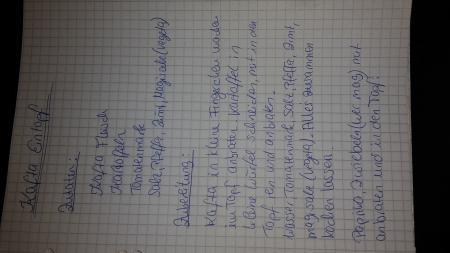 Kafta Eintopf
Zutaten:
Kafta Fleisch
Kartoffeln
Tomatenmark
Salz, Pfeffer, Zimt, Magicube (Vegeta)
Zubereitung:
Kafta in kleine Fingerchen
im Topf anbraten Kartoffel in
kleine Würfel schneiden, mit in den
Topf rein und anbraten.
Wasser Tomatenmark, Salz, Pfeffer, Zimt,
(Vegeta). Alles zusammen
kochen lassen.
Paprika, Zwiebeln (wer mag) mit
anbraten und in den Topf!